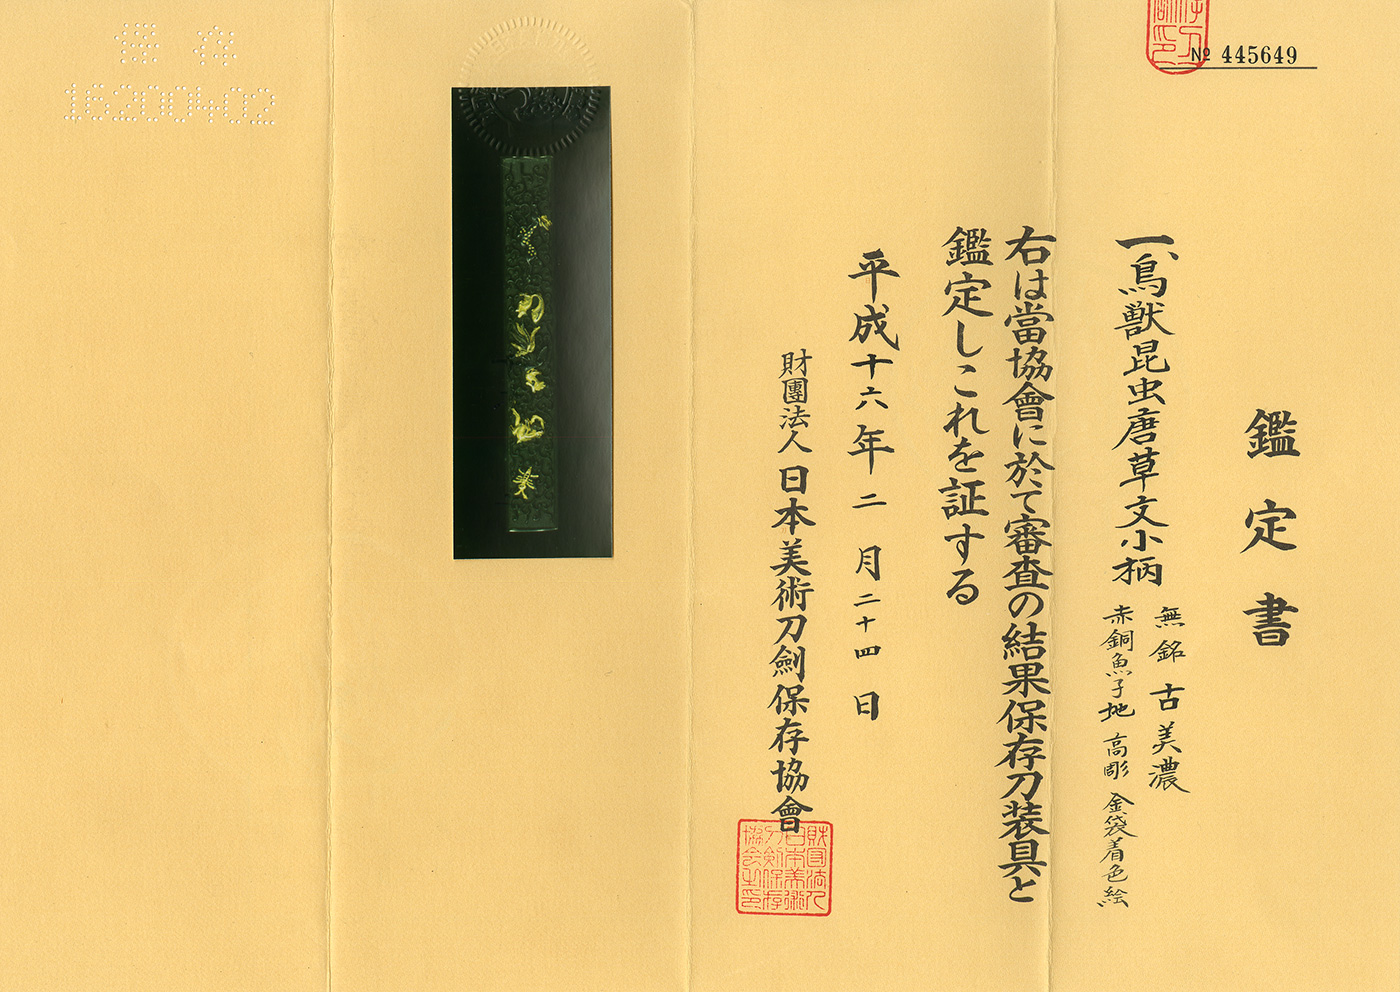 № 445649
鑑定書
一、鳥獣昆虫唐草文小柄
無銘 古美濃
赤銅魚子地 高彫 金袋着色絵
右は當協會に於て審査の結果保存刀装具と
鑑定しこれを証する
平成十六年二月二十四日
財團法人日本美術刀劍保存協會
財團法人
日本美術
刀劍保存
協会之印
保存
16200402